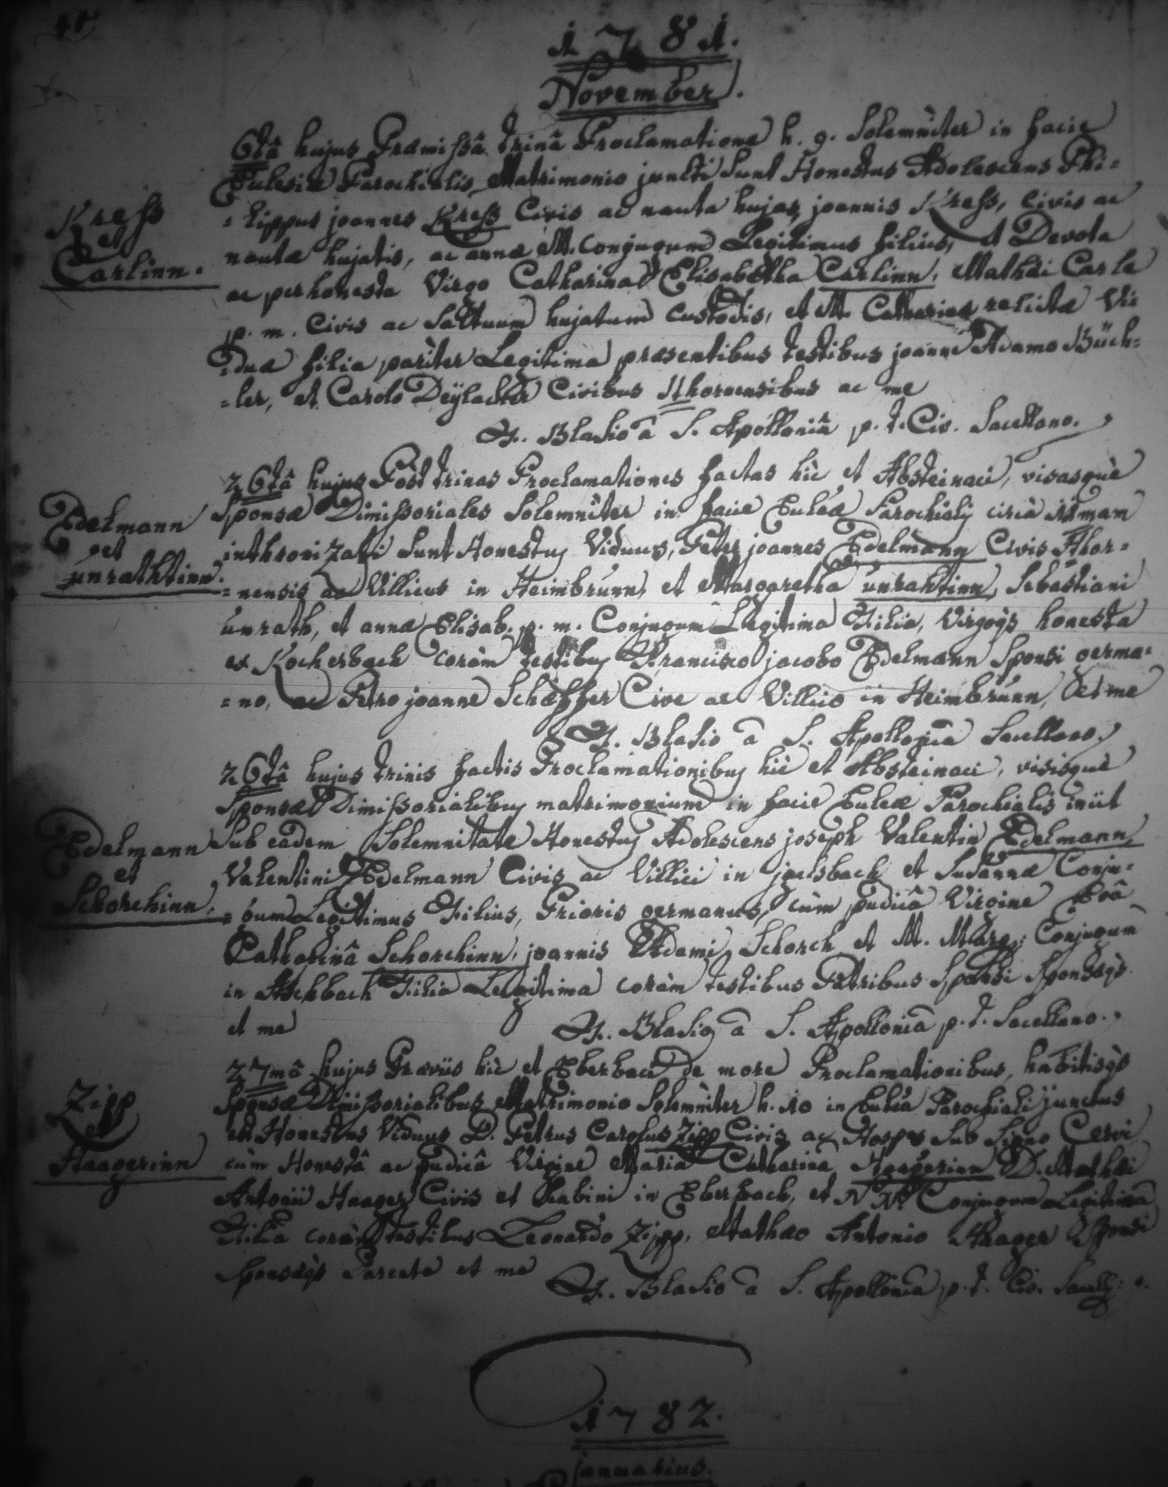 1781.
November.
Kress
et
Carlinn.
6tâ hujus Præmissâ trinâ Proclamatione h. 9. Solemniter in facie
Eclesiæ Parochialis Matrimonio juncti Sunt Honestus Adolescens Phi=
=lippus joannes Kress Civis ac nauta hujas, joannis Kress, civis ac
nautæ hujatis, ac annæ M. conjugum Legitimus filius, et Devota
ac perhonesta Virgo Catharina Elisabetha Carlinn, Mathæi Carle
p. m. Civis ac Saltuum hujatum custodis, et M. Catharinæ relictæ Vi=
=duæ filia pariter Legitima præsentibus testibus joanne Adamo Büch=
=ler, et Carolo Deÿlacker Civibus Ithoroensibus ac me
F. Blasio â S. Apolloniâ p. t. Civ. Sacellano.
Edelmann
et
unrathtinn.
26tâ hujus Post trinas Proclamationes factas hic et Absteinaci, visasque
Sponsæ Dimissoriales Solemniter in facie Eccleæ Parochialis circà
inthronizati Sunt Honestus Viduus, Peter joannes Edelmann Civis Thor=
=nensis ac Villicus in Heimbrunn, et Margaretha unrahtinn, Sebastiani
unrath, et annæ Elisab. p. m. Conjugum Legitima Filia, Virgoqs honesta
ex Kocherbach coràm testibus Francisco jacobo Edelmann Sponsi germa=
=no, ac Petro joanne Schäffer Cive ac Villico in Heimbrunn, Et me
F. Blasio â S. Apolloniâ Sacellano.
Edelmann
et
Schorchinn.
26tâ hujus trinis factis Proclamationibus hic et Absteinaci, visisque
Sponsæ Dimissorialibus matrimonium in facie Eccleæ Parochialis iniit
Sub eâdem Solemnitate Honestus Adolescens joseph Valentin Edelmann,
Valentini Edelmann Civis ac Villici in jachsbach et Susannæ Conju=
=gum Legitimus Filius, Prioris germanus, cum pudicâ Virgine Evâ
Catharinâ Schorchinn, joannis Adami Schorch et M. Marg: Conjugum
in Aschbach Filia Legitima coràm testibus Patribus Sponsi Sponsæqs
et me F. Blasio â S. Apolloniâ p. t. Sacellano.
Zipp
et
Haagerinn
27mâ hujus Præviis hic et Eberbaci de more Proclamationibus, habitisqs
Sponsæ Dimissorialibus Matrimonio Solemniter h. 10 in Ecclea Parochiali junctus
est Honestus Viduus D. Petrus Carolus Zipp Civis ac Hospes Sub Signo Cervi
cum Honestâ ac pudicâ Virgine Mariâ Catharinâ Haagerinn D. Mathæi
Antonii Haager Civis et Rabini in Eberbach, et N. N. Conjugum Legitimâ
Filiâ coràm testibus Leonardo Zipp, Mathæo Antonio Haager Sponsi
Sponsæqs Parente et me F. Blasio â S. Apolloniâ p. t. Civ. Sacell:
1782.
januarius.